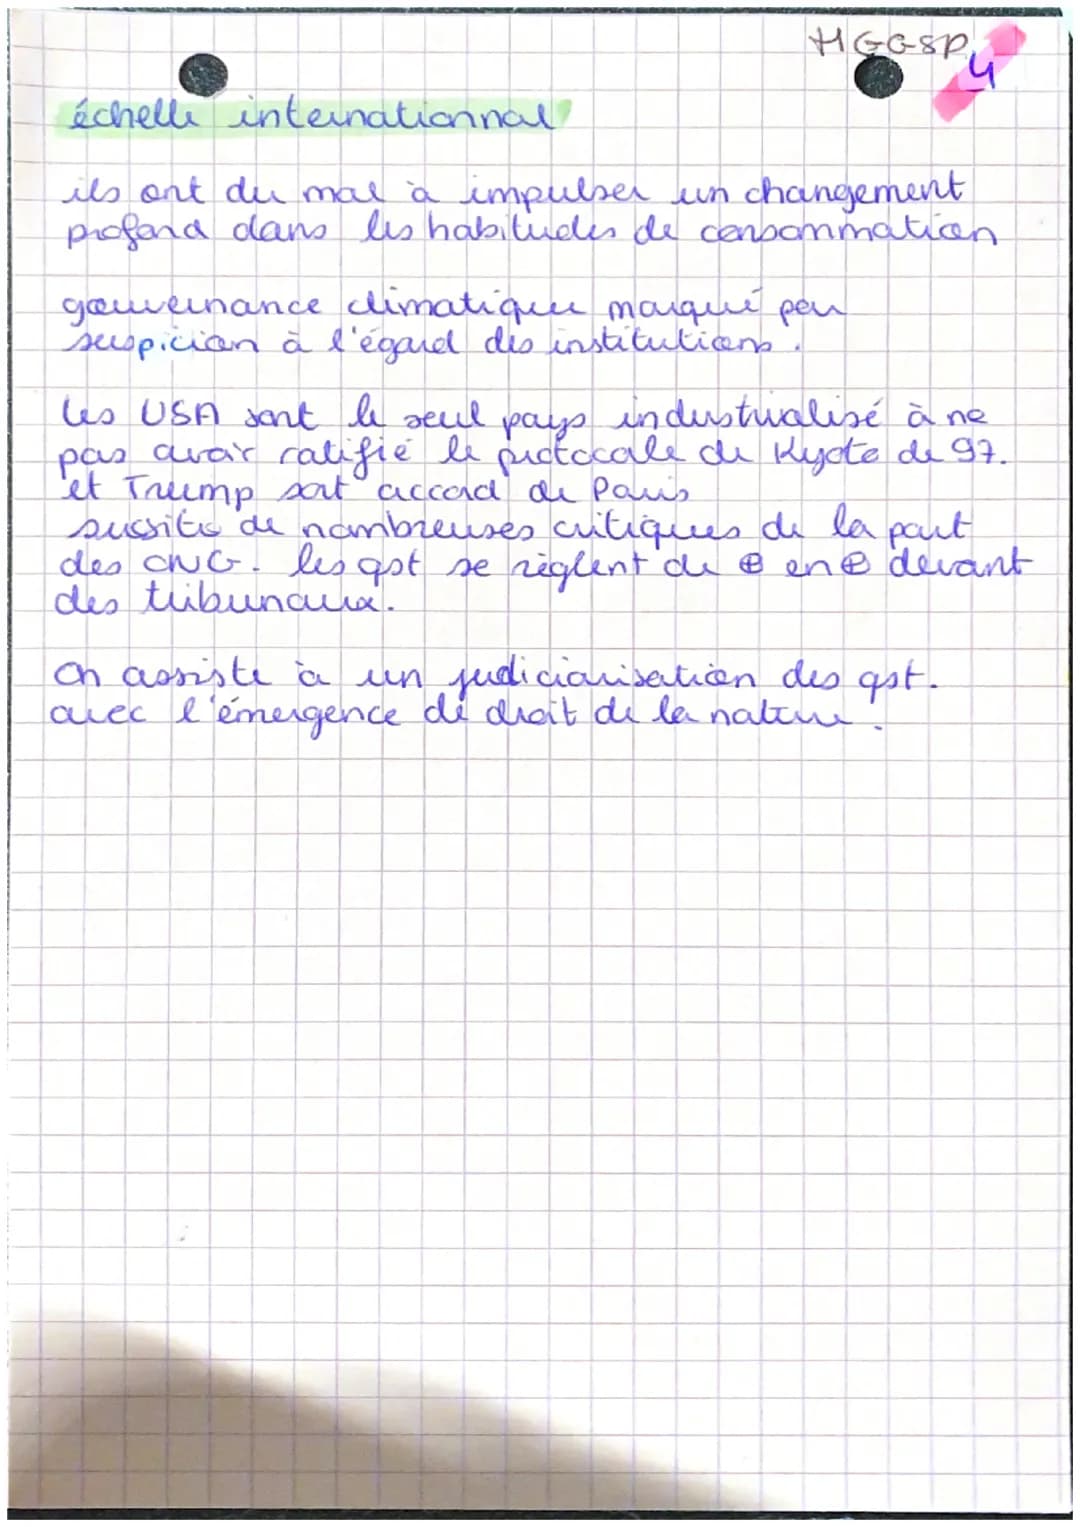 HGGSP 4
échelle internationnal
ils ont du mal à impulser un changement
profond dans les habitudes de consommation
gouvernance climatique marqué par
suspicion à l'égard des institutions.
les USA sont le seul pays industrialisé à ne
pas avoir ratifié le protocole de Kyoto de 97.
et Trump sort accord de Paris
sucsite de nombreuses critiques de la part
des ONG. les qst se règlent de ⊕ en ⊕ devant
des tribunaux.
On assiste à un judiciarisation des qst.
avec l'émergence de droit de la nature.